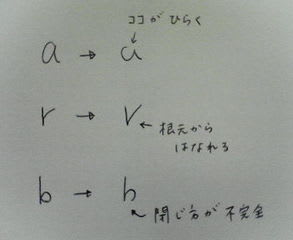 ココが ひらく
a → u
r → v
← 根元から
はなれる
b → h
← 閉じ方が 不完全